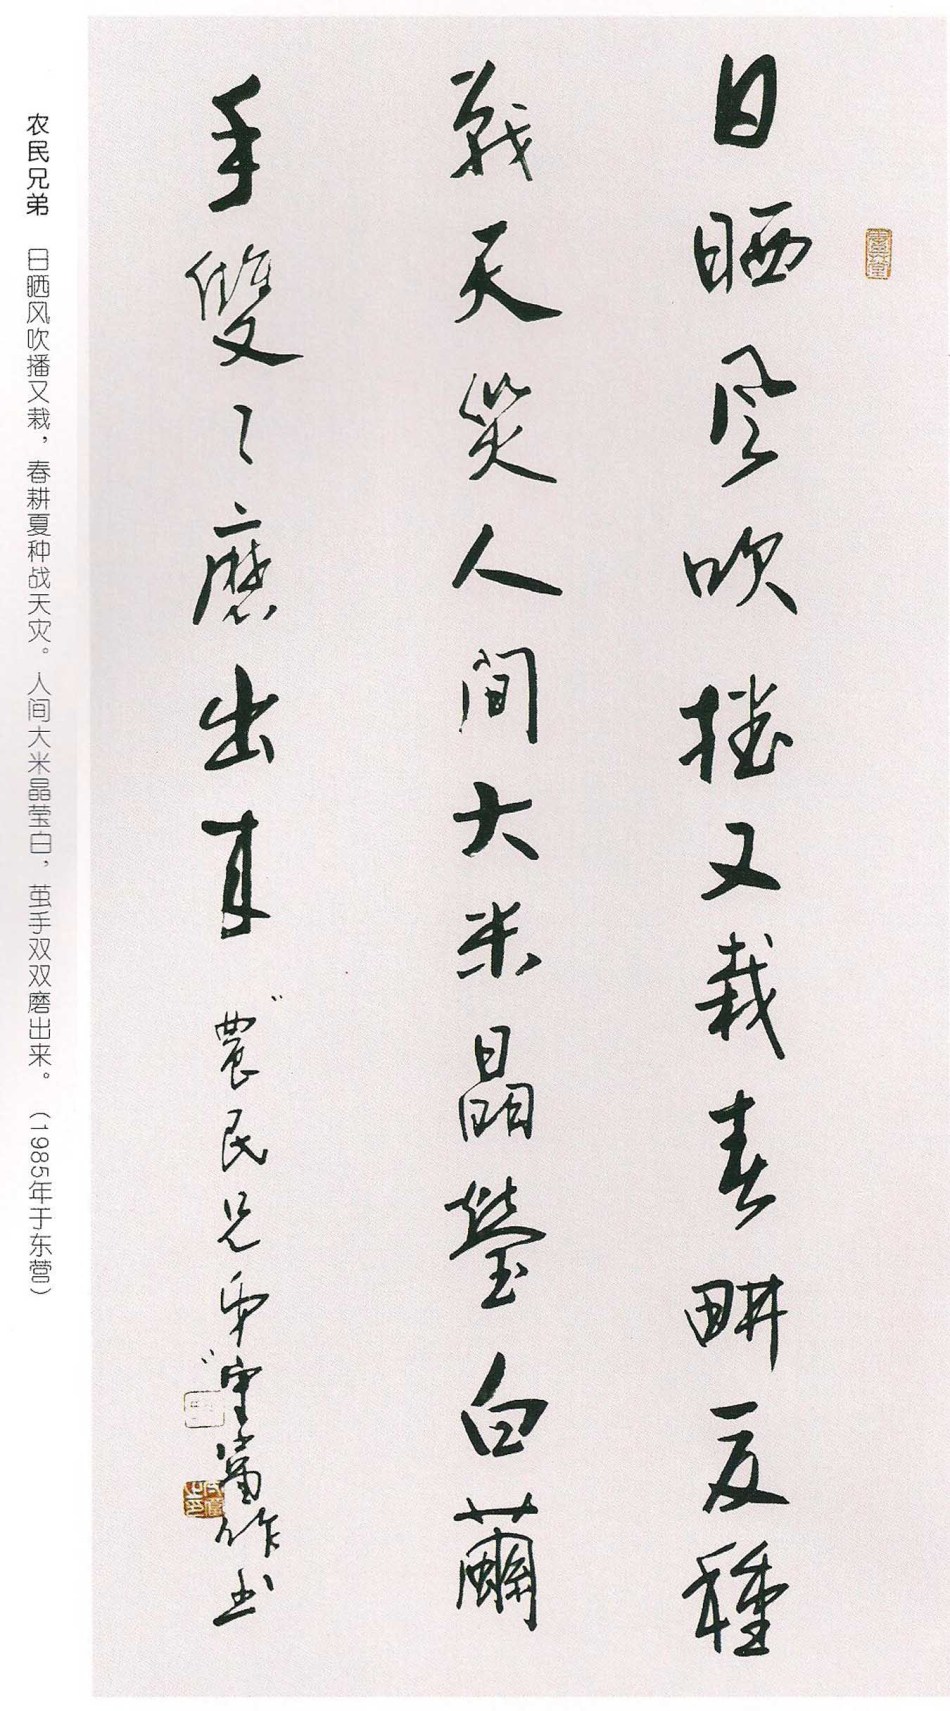 日晒风吹播又栽春耕夏種
战天災人間大米晶瑩白繭
手雙々磨出来
"農民兄弟"
作书
农民兄弟 日晒风吹播又栽，春耕夏种战天灾。人间大米晶莹白，茧手双双磨出来。（1985年于东营）